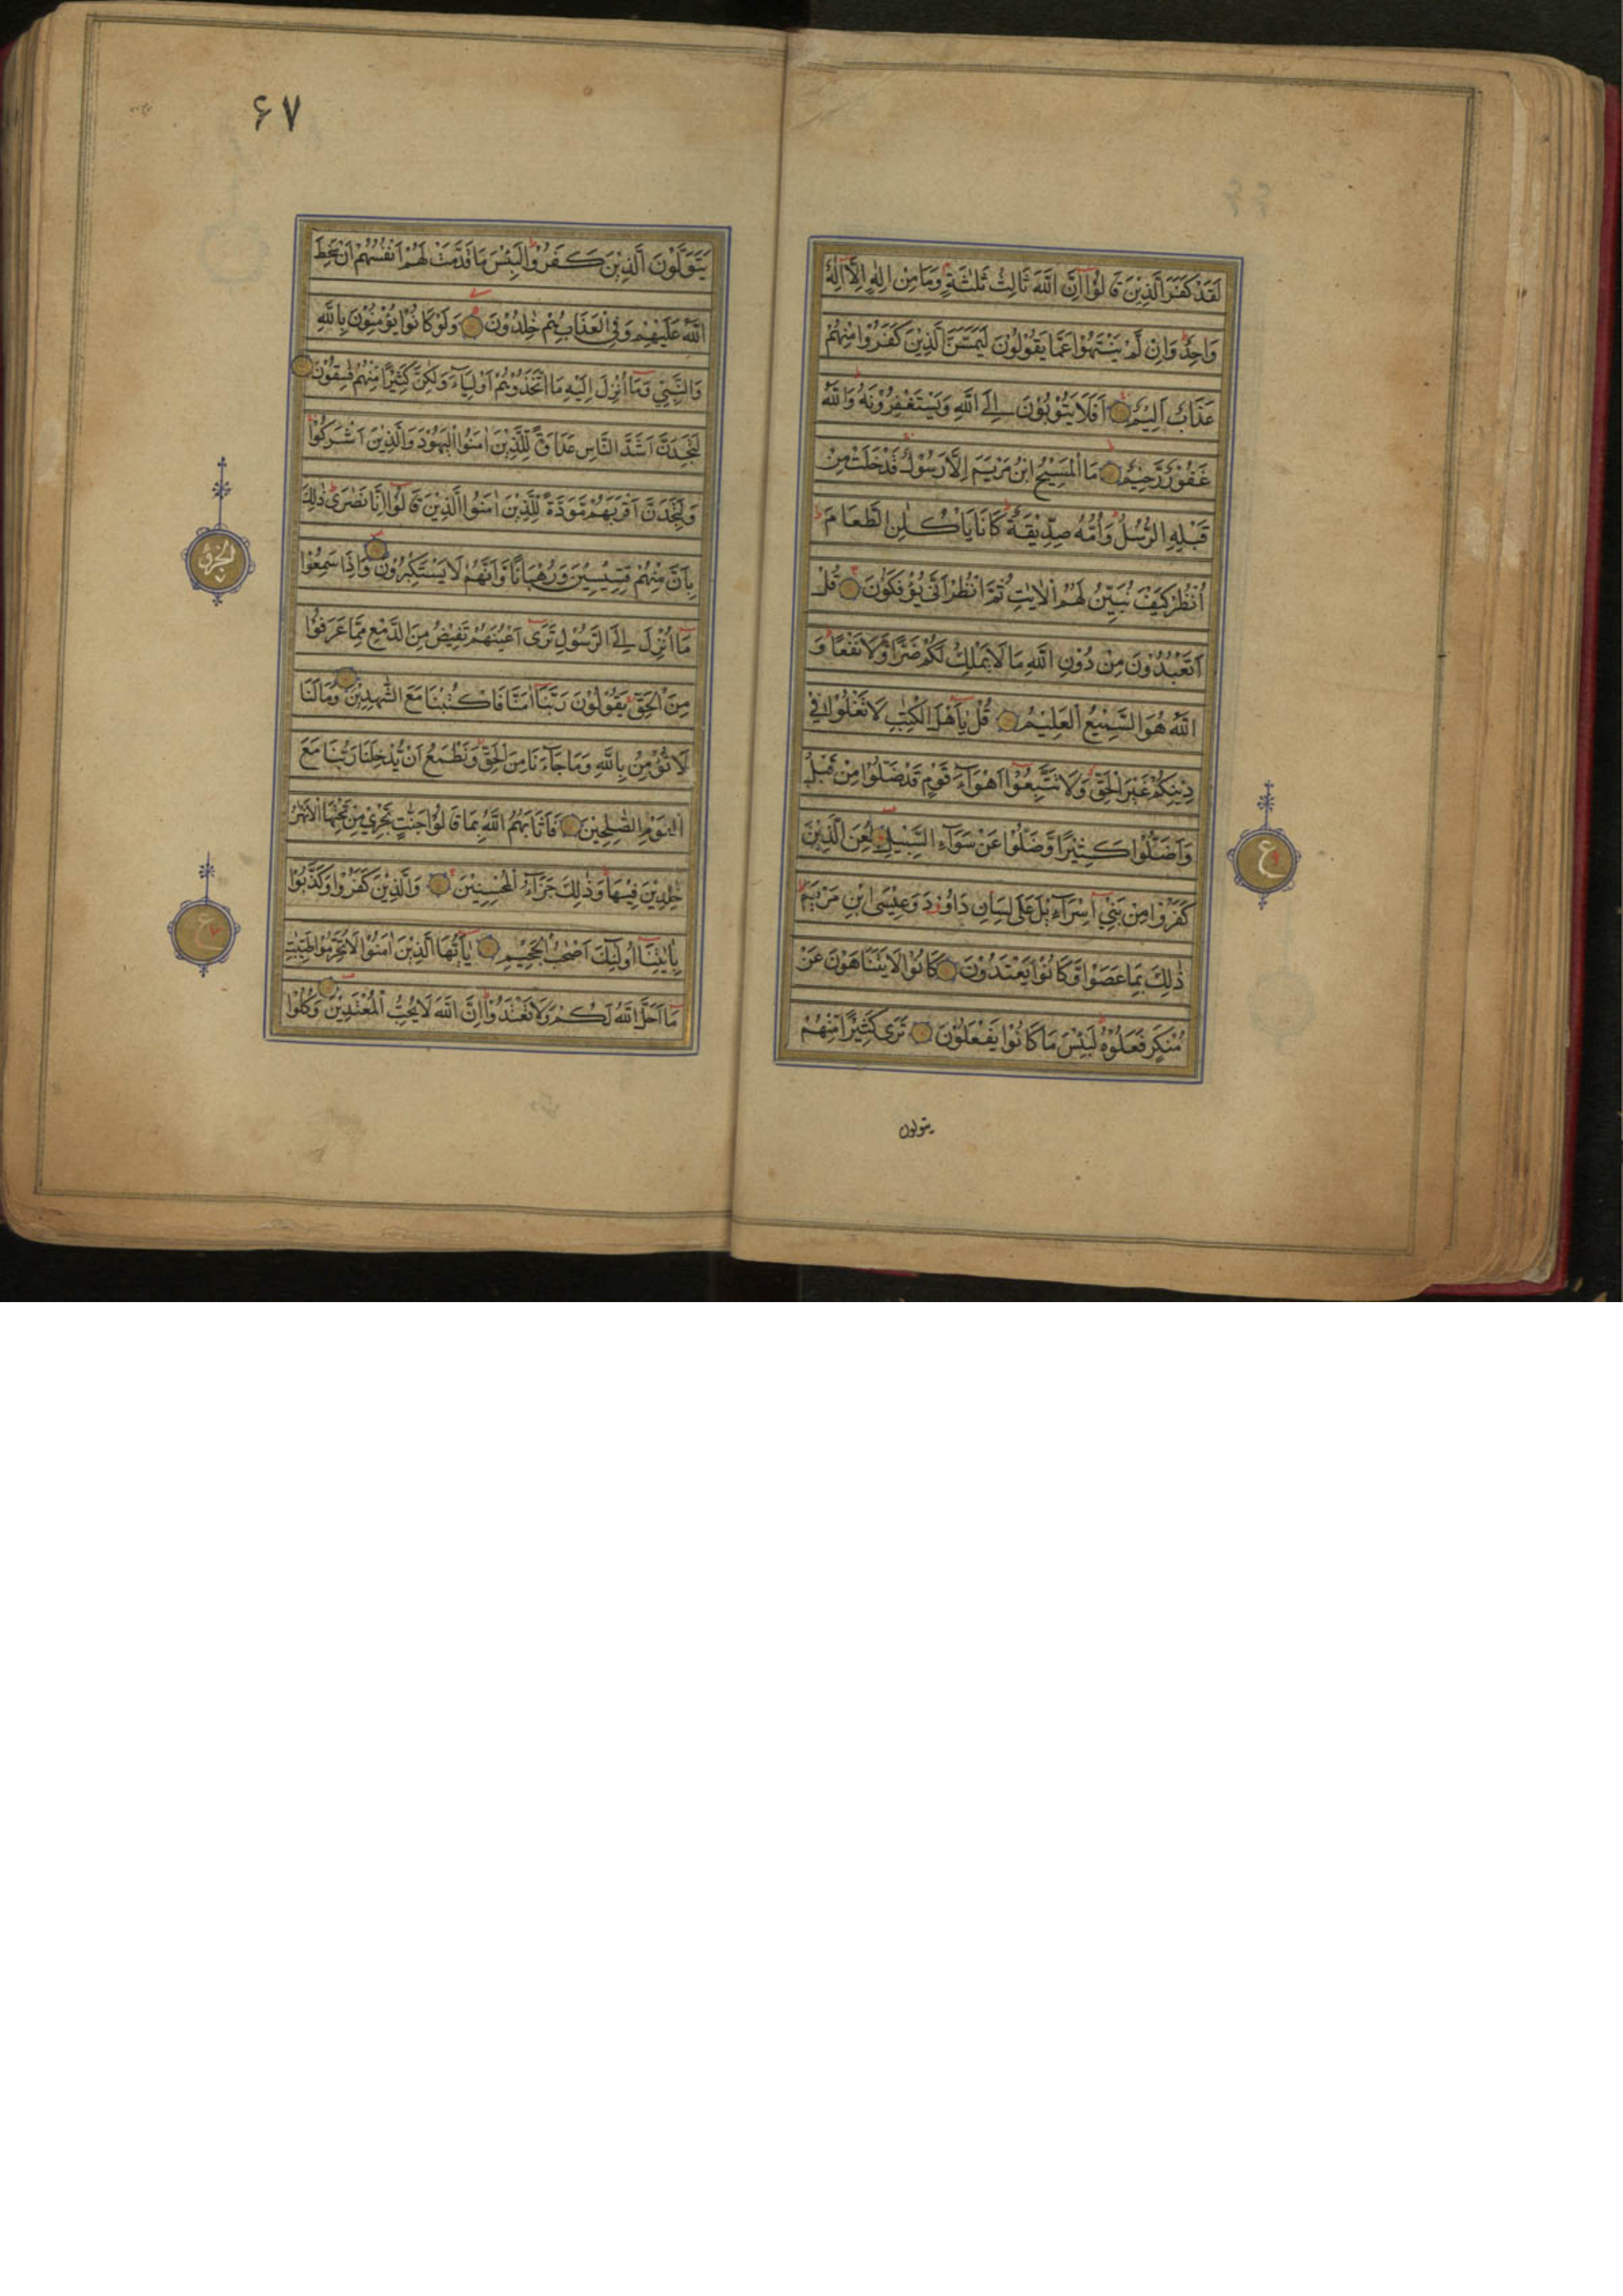 لَقَدْ كَفَرَ الَّذِيْنَ قَالُوْٓا اِنَّ اللّٰهَ ثَالِثُ ثَلٰثَةٍ وَمَا مِنْ اِلٰهٍ اِلَّآ اِلٰهٌ
وَاحِدٌ وَاِنْ لَمْ يَنْتَهُوْا عَمَّا يَقُوْلُوْنَ لَيَمَسَّنَّ الَّذِيْنَ كَفَرُوْا مِنْهُمْ
عَذَابٌ اَلِيْمٌ اَفَلَا يَتُوْبُوْنَ اِلَى اللّٰهِ وَيَسْتَغْفِرُوْنَهُ وَاللّٰهُ
غَفُوْرٌ رَحِيْمٌ مَا الْمَسِيْحُ ابْنُ مَرْيَمَ اِلَّا رَسُوْلٌ قَدْ خَلَتْ مِنْ
قَبْلِهِ الرُّسُلُ وَاُمُّهُ صِدِّيْقَةٌ كَانَا يَاْكُلٰنِ الطَّعَامَ
اُنْظُرْ كَيْفَ نُبَيِّنُ لَهُمُ الْاٰيٰتِ ثُمَّ انْظُرْ اَنّٰى يُؤْفَكُوْنَ قُلْ
اَتَعْبُدُوْنَ مِنْ دُوْنِ اللّٰهِ مَا لَا يَمْلِكُ لَكُمْ ضَرًّا وَّلَا نَفْعًا وَ
اللّٰهُ هُوَ السَّمِيْعُ الْعَلِيْمُ قُلْ يٰٓاَهْلَ الْكِتٰبِ لَا تَغْلُوْا فِيْ
دِيْنِكُمْ غَيْرَ الْحَقِّ وَلَا تَتَّبِعُوْٓا اَهْوَآءَ قَوْمٍ قَدْ ضَلُّوْا مِنْ قَبْلُ
وَاَضَلُّوْا كَثِيْرًا وَّضَلُّوْا عَنْ سَوَآءِ السَّبِيْلِ لُعِنَ الَّذِيْنَ
كَفَرُوْا مِنْ بَنِيْٓ اِسْرَآءِيْلَ عَلٰى لِسَانِ دَاوٗدَ وَعِيْسَى ابْنِ مَرْيَمَ
ذٰلِكَ بِمَا عَصَوْا وَّكَانُوْا يَعْتَدُوْنَ كَانُوْا لَا يَتَنَاهَوْنَ عَنْ
مُنْكَرٍ فَعَلُوْهُ لَبِئْسَ مَا كَانُوْا يَفْعَلُوْنَ تَرٰى كَثِيْرًا مِنْهُمْ
يتولون
ع
۶۷
يَتَوَلَّوْنَ الَّذِيْنَ كَفَرُوْا لَبِئْسَ مَا قَدَّمَتْ لَهُمْ اَنْفُسُهُمْ اَنْ سَخِطَ
اللّٰهُ عَلَيْهِمْ وَفِي الْعَذَابِ هُمْ خٰلِدُوْنَ وَلَوْ كَانُوْا يُؤْمِنُوْنَ بِاللّٰهِ
وَالنَّبِيِّ وَمَآ اُنْزِلَ اِلَيْهِ مَا اتَّخَذُوْهُمْ اَوْلِيَآءَ وَلٰكِنَّ كَثِيْرًا مِنْهُمْ فٰسِقُوْنَ
لَتَجِدَنَّ اَشَدَّ النَّاسِ عَدَاوَةً لِلَّذِيْنَ اٰمَنُوا الْيَهُوْدَ وَالَّذِيْنَ اَشْرَكُوْا
وَلَتَجِدَنَّ اَقْرَبَهُمْ مَوَدَّةً لِلَّذِيْنَ اٰمَنُوا الَّذِيْنَ قَالُوْٓا اِنَّا نَصٰرٰى ذٰلِكَ
بِاَنَّ مِنْهُمْ قِسِّيْسِيْنَ وَرُهْبَانًا وَّاَنَّهُمْ لَا يَسْتَكْبِرُوْنَ وَاِذَا سَمِعُوْا
مَآ اُنْزِلَ اِلَى الرَّسُوْلِ تَرٰٓى اَعْيُنَهُمْ تَفِيْضُ مِنَ الدَّمْعِ مِمَّا عَرَفُوْا
مِنَ الْحَقِّ يَقُوْلُوْنَ رَبَّنَآ اٰمَنَّا فَاكْتُبْنَا مَعَ الشّٰهِدِيْنَ وَمَا لَنَا
لَا نُؤْمِنُ بِاللّٰهِ وَمَا جَآءَنَا مِنَ الْحَقِّ وَنَطْمَعُ اَنْ يُّدْخِلَنَا رَبُّنَا مَعَ
الْقَوْمِ الصّٰلِحِيْنَ فَاَثَابَهُمُ اللّٰهُ بِمَا قَالُوْا جَنّٰتٍ تَجْرِيْ مِنْ تَحْتِهَا الْاَنْهٰرُ
خٰلِدِيْنَ فِيْهَا وَذٰلِكَ جَزَآءُ الْمُحْسِنِيْنَ وَالَّذِيْنَ كَفَرُوْا وَكَذَّبُوْا
بِاٰيٰتِنَآ اُولٰٓئِكَ اَصْحٰبُ الْجَحِيْمِ يٰٓاَيُّهَا الَّذِيْنَ اٰمَنُوْا لَا تُحَرِّمُوْا طَيِّبٰتِ
مَآ اَحَلَّ اللّٰهُ لَكُمْ وَلَا تَعْتَدُوْا اِنَّ اللّٰهَ لَا يُحِبُّ الْمُعْتَدِيْنَ وَكُلُوْا
ع